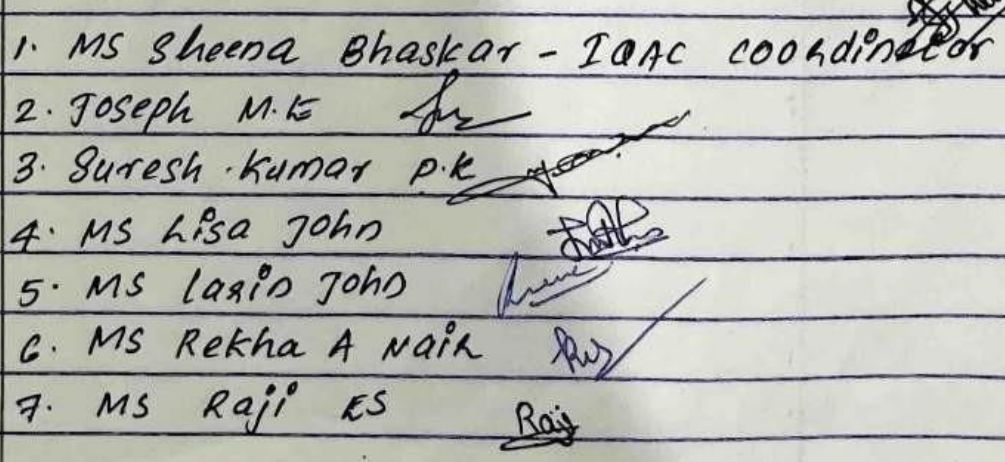 1. MS Sheena Bhaskar - IQAC coordinator
2. Joseph M.E
3. Suresh .Kumar P.K
4. MS Lisa John
5. MS Larin John
6. MS Rekha A Nair
7. MS Raji ES Raji